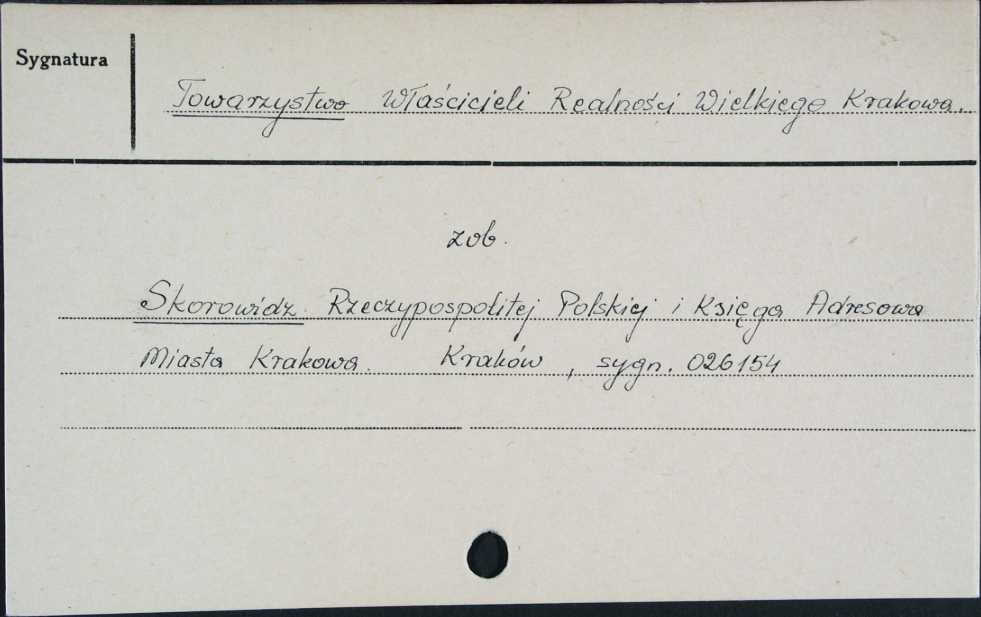 Sygnatura
Towarzystwo Właścicieli Realności Wielkiego Krakowa.
zob.
Skorowidz Rzeczypospolitej Polskiej i Księga Adresowa
Miasta Krakowa. Kraków , sygn. 026154